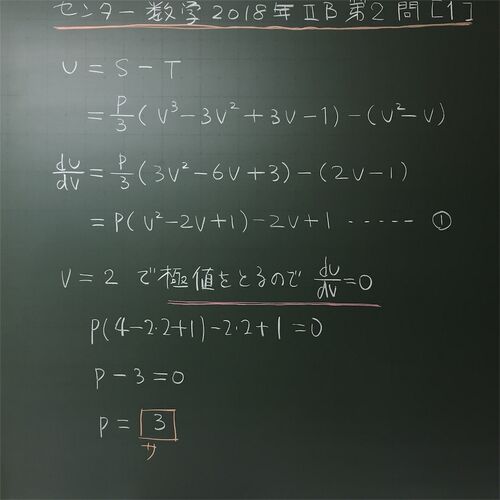 センター数学2018年ⅡB第2問[1]
U = S - T
= P/3 (v³ - 3v² + 3v - 1) - (v² - v)
dU/dv = P/3 (3v² - 6v + 3) - (2v - 1)
= P(v² - 2v + 1) - 2v + 1 ····· ①
v = 2 で極値をとるので dU/dv = 0
P(4 - 2·2 + 1) - 2·2 + 1 = 0
P - 3 = 0
P = 3
サ